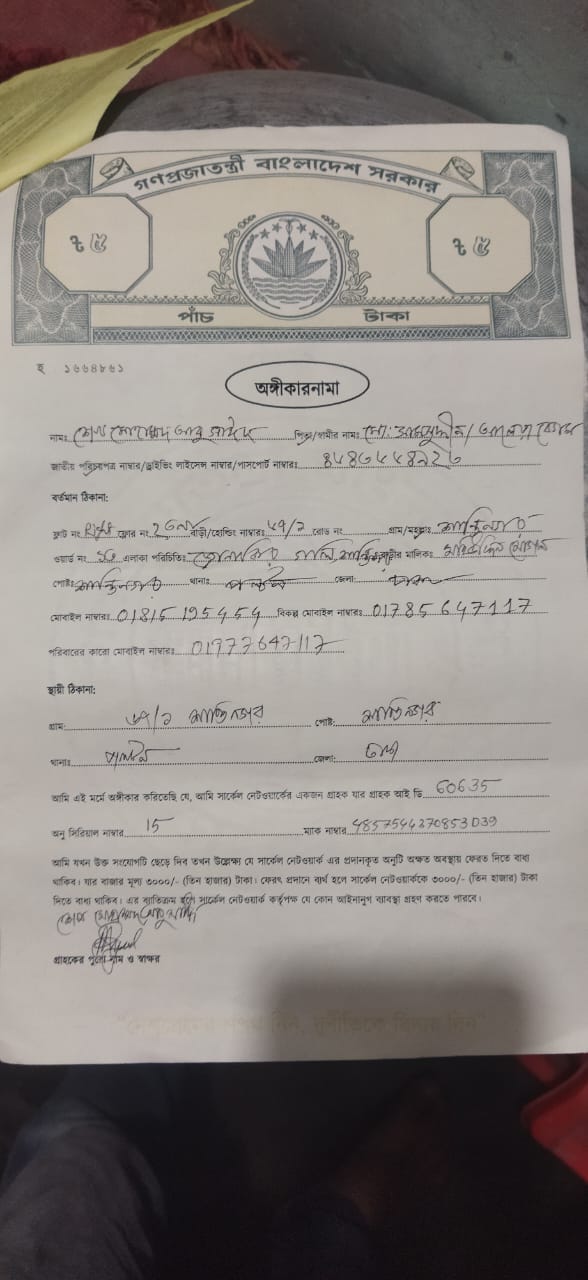 গণপ্রজাতন্ত্রী বাংলাদেশ সরকার
৳ ৫ ৳ ৫
পাঁচ টাকা
১৬৬৪৮৬১
অঙ্গীকারনামা
নামঃ শেখ মোহাম্মদ আবু সাঈদ পিতা/স্বামীর নাম: মো:
জাতীয় পরিচয়পত্র নাম্বার/ড্রাইভিং লাইসেন্স নাম্বার/পাসপোর্ট নাম্বারঃ
বর্তমান ঠিকানা:
ফ্লাট নং Right ফ্লোর নং বাড়ী/হোল্ডিং নাম্বারঃ রোড নং গ্রাম/মহল্লাঃ শান্তিনগর
ওয়ার্ড নং এলাকা পরিচিতিঃ গলি, শান্তিনগর বাড়ীর মালিকঃ
পোষ্টঃ শান্তিনগর থানাঃ পল্টন জেলা: ঢাকা
মোবাইল নাম্বারঃ 01815195454 বিকল্প মোবাইল নাম্বারঃ 01785647117
পরিবারের কারো মোবাইল নাম্বারঃ 01977647117
স্থায়ী ঠিকানা:
গ্রাম: শান্তিনগর পোষ্ট: শান্তিনগর
থানাঃ পল্টন জেলা: ঢাকা
আমি এই মর্মে অঙ্গীকার করিতেছি যে, আমি সার্কেল নেটওয়ার্কের একজন গ্রাহক যার গ্রাহক আই ডি 60635
অনু সিরিয়াল নাম্বার 15 ম্যাক নাম্বার 4857544370853D39
আমি যখন উক্ত সংযোগটি ছেড়ে দিব তখন উল্লেখ্য যে সার্কেল নেটওয়ার্ক এর প্রদানকৃত অনুটি অক্ষত অবস্থায় ফেরত দিতে বাধ্য
থাকিব। যার বাজার মূল্য ৩০০০/- (তিন হাজার) টাকা। ফেরৎ প্রদানে ব্যর্থ হলে সার্কেল নেটওয়ার্ককে ৩০০০/- (তিন হাজার) টাকা
দিতে বাধ্য থাকিব। এর ব্যতিক্রম হলে সার্কেল নেটওয়ার্ক কর্তৃপক্ষ যে কোন আইনানুগ ব্যবস্থা গ্রহণ করতে পারবে।
শেখ মোহাম্মদ আবু সাঈদ
গ্রাহকের পুরো নাম ও স্বাক্ষর